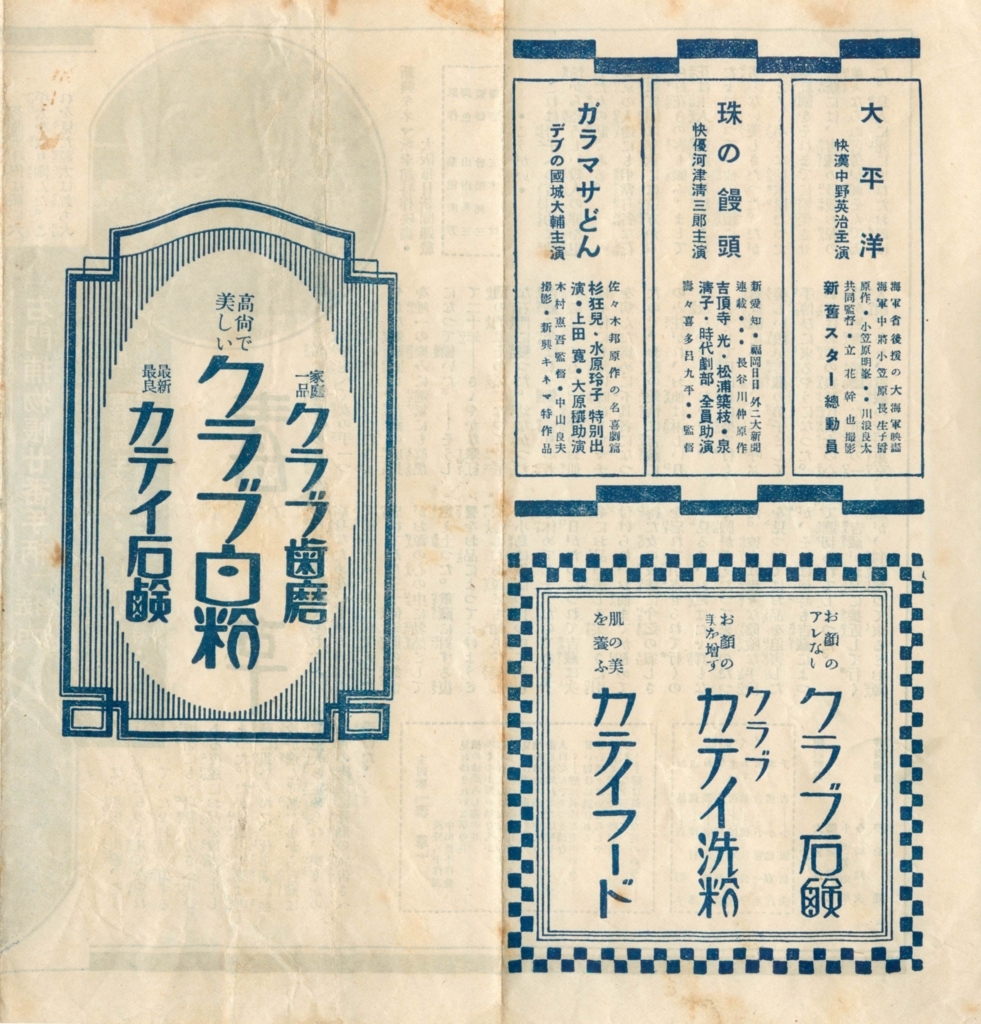 大平洋
快漢中野英治主演
海軍省後援の大海軍映畫
海軍中將小笠原長生子爵
原作・小笠原明峯・・川浪良太
共同監督・立花幹也撮影
新舊スター總動員
珠の饅頭
快優河津清三郎主演
新愛知・福岡日日外二大新聞
連載・・・・長谷川伸原作
吉頂寺光・松浦築枝・泉
清子・時代劇部全員助演
壽々喜多呂九平・・監督
ガラマサどん
デブの國城大輔主演
佐々木邦原作の名喜劇篇
杉狂兒・水原玲子特別出
演・上田寛・大原穣助演
木村惠吾監督・中山良夫
撮影・新興キネマ特作品
お顔の
アレない
クラブ石鹸
お顔の
美を增す
クラブ
カテイ洗粉
肌の美
を養ふ
カテイフード
家庭
一品
クラブ歯磨
高尙で
美しい
クラブ白粉
最新
最良
カテイ石鹸